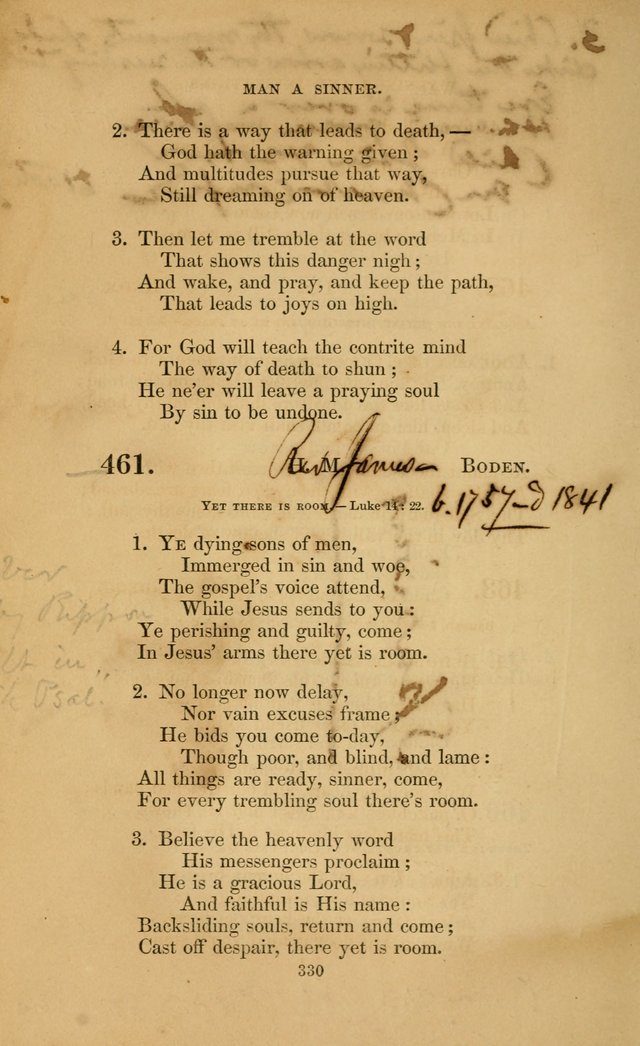 MAN A SINNER.
2. There is a way that leads to death, —
God hath the warning given ;
And multitudes pursue that way,
Still dreaming on of heaven.
3. Then let me tremble at the word
That shows this danger nigh ;
And wake, and pray, and keep the path,
That leads to joys on high.
4. For God will teach the contrite mind
The way of death to shun ;
He ne'er will leave a praying soul
By sin to be undone.
461. H. M. Rev James BODEN.
YET THERE IS ROOM. — Luke 14: 22. b. 1757–d 1841
1. YE dying sons of men,
Immerged in sin and woe,
The gospel's voice attend,
While Jesus sends to you :
Ye perishing and guilty, come ;
In Jesus' arms there yet is room.
2. No longer now delay,
Nor vain excuses frame ;
He bids you come to-day,
Though poor, and blind, and lame :
All things are ready, sinner, come,
For every trembling soul there's room.
3. Believe the heavenly word
His messengers proclaim ;
He is a gracious Lord,
And faithful is His name :
Backsliding souls, return and come ;
Cast off despair, there yet is room.
330